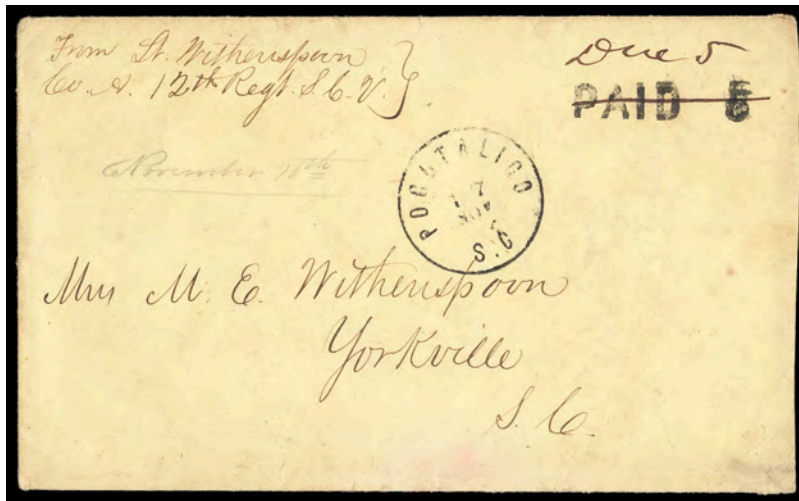 From Lt. Witherspoon
Co. A. 12th Regt. S. C. V.
Due 5
PAID 5
November 16th
POCOTALIGO
17
NOV
S.C
Mrs M. E. Witherspoon
Yorkville
S. C.